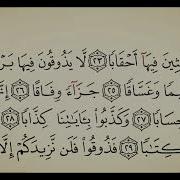 ـثِينَ فِيهَآ أَحْقَابًا ﴿٢٣﴾ لَّا يَذُوقُونَ فِيهَا بَرْ
ـيمًا وَغَسَّاقًا ﴿٢٥﴾ جَزَآءً وِفَاقًا ﴿٢٦﴾ إِنَّـ
ـسَابًا ﴿٢٧﴾ وَكَذَّبُوا۟ بِـَٔايَـٰتِنَا كِذَّابًا ﴿٢٨﴾
كِتَـٰبًا ﴿٢٩﴾ فَذُوقُوا۟ فَلَن نَّزِيدَكُمْ إِلَّا